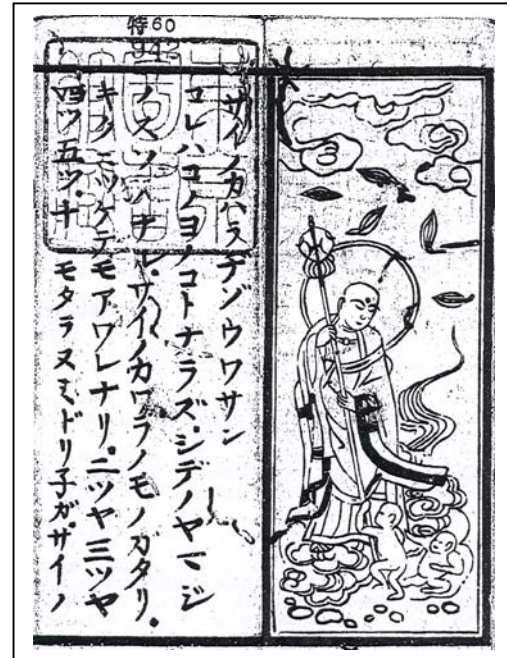 特60
942
サイノカハラヂゾウワサン
コレハコノヨノコトナラズ。シデノヤマジ
ノスソノナル。サイノカワラノモノガタリ。
キクニツケテモアワレナリ。二ツヤ三ツヤ
四ツ五ツ。十モタラヌミドリ子ガ。サイノ